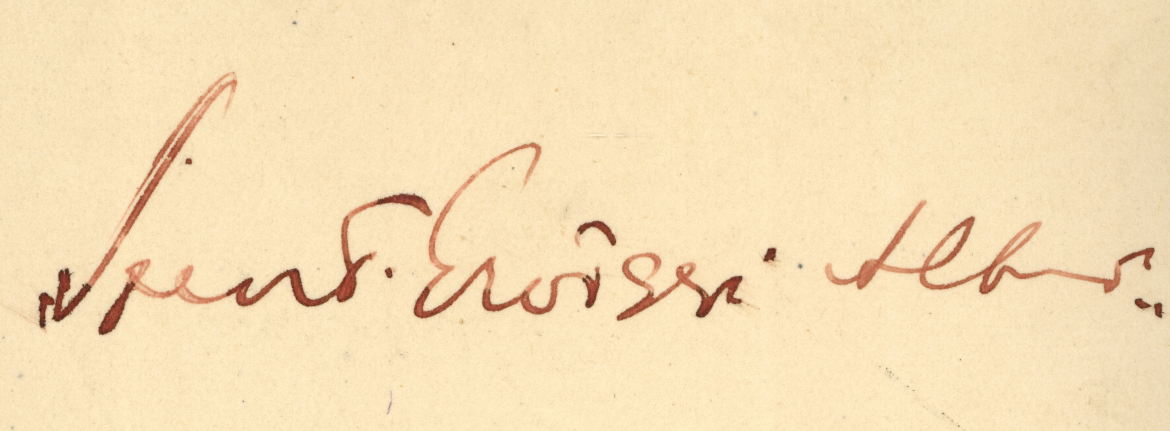 Szent-Györgyi Albert